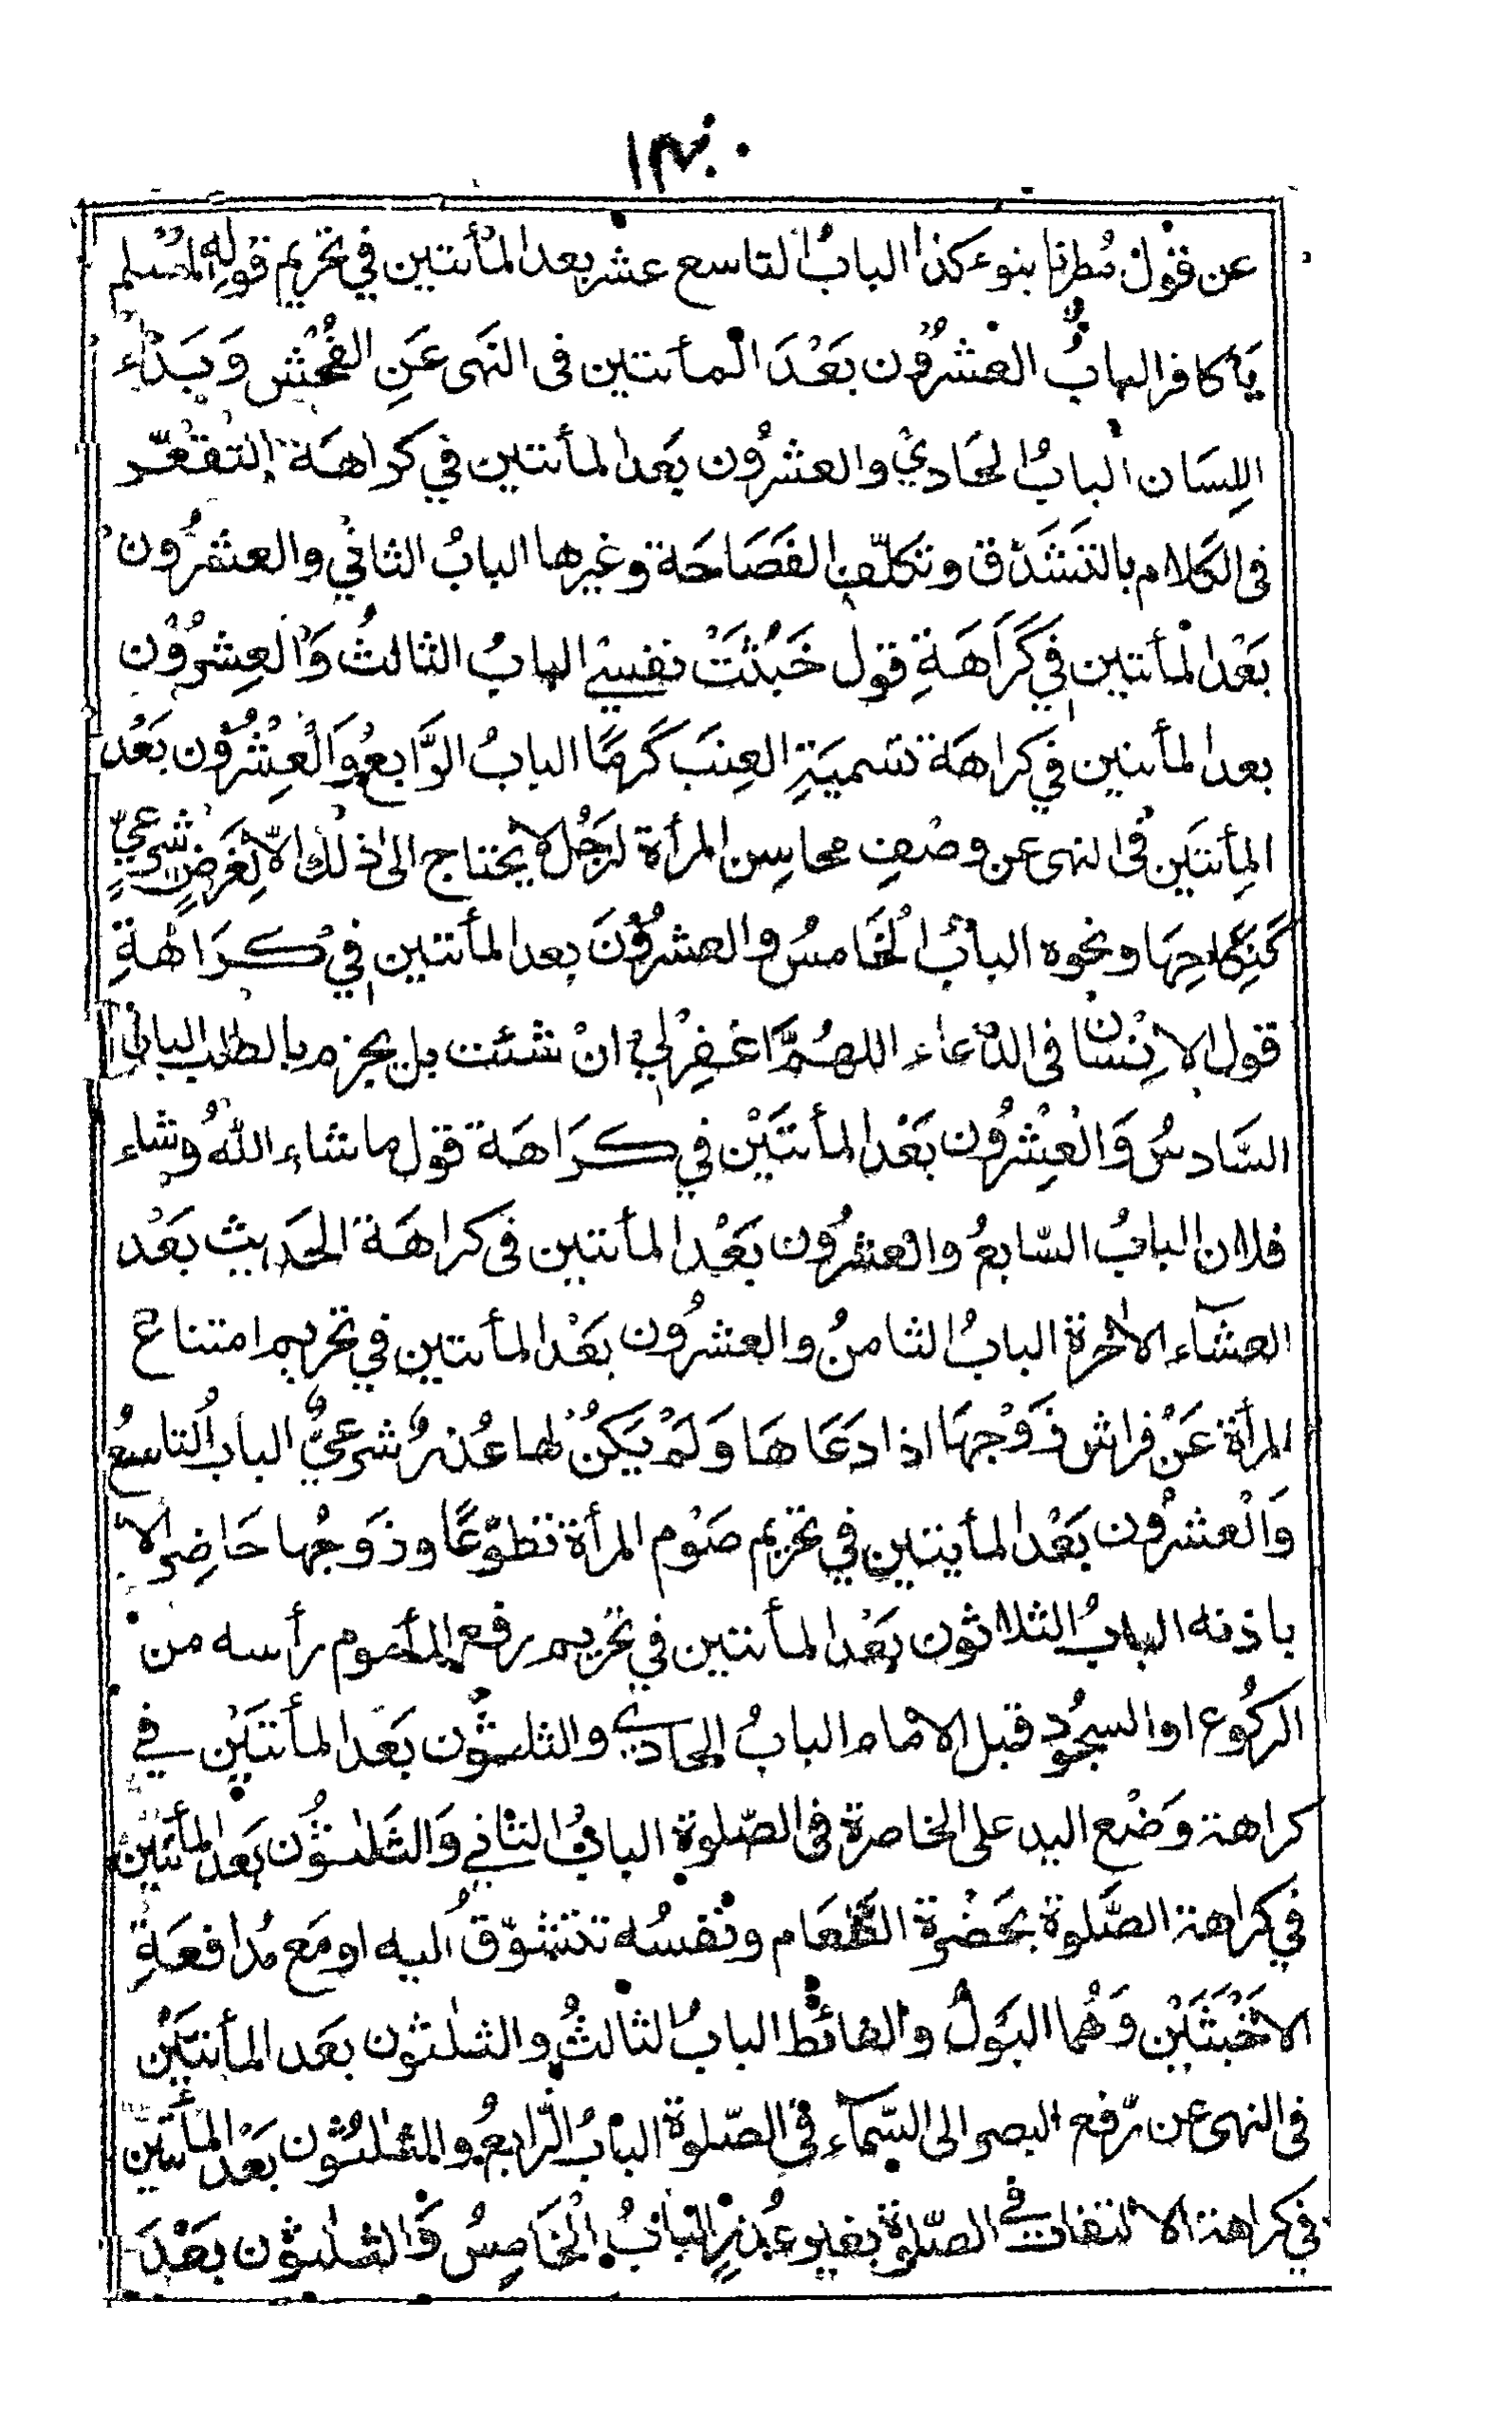 عن قول مُطرنا بنوء كذا البابُ التاسع عشر بعد المأتين في تحريم قوله لمُسلم
يَا كافر البابُ العشرُون بَعْدَ المأتين فى النَهى عَنِ الفُحْش وَبَذَاءِ
اللِسَان البابُ الحَادي والعشرُون بَعد المأتين في كراهَة التقَعّر
فى الكَلام بالتَشَدّق وتكلّف الفَصَاحَة وغيرها البابُ الثاني والعشرُون
بَعْد المأتين في كَرَاهَةِ قول خَبُثَتْ نفسِي البابُ الثالثُ وَالعِشرُوْن
بعد المأتين في كراهَة تسَميَةِ العِنَب كَرمًا البابُ الرَّابعُ وَالْعِشْرُوْن بَعْد
المِأتَين فى النهى عن وصْفِ محاسِن المرأة لرَجُل لا يحتاج الى ذلك الاّ لِغَرَضٍ شرعيٍّ
كَنِكَاحِهَا ونحوه البابُ الخَامسُ والعشرُوْنَ بعد المأتين في كَرَاهَةِ
قول الاِنْسَان فى الدّعاء اللهُمَّ اغفِرْلي انْ شئت بل يجزم بالطلب البابُ
السَّادسُ وَالْعِشْرُون بَعْد المأتَيْن في كَرَاهَة قول ما شاء اللهُ وشاء
فلان البابُ السّابعُ والعشرُون بَعْد المأتين فى كراهَة الحَديث بَعْد
العشآء الاخرة البابُ الثامنُ والعشرُون بَعْد المأتين في تحريم امتناع
المرأة عَنْ فراش زَوْجِهَا اذا دَعَاهَا وَلَمْ يَكُنْ لها عُذرٌ شرعيٌّ البابُ التاسعُ
وَالْعشرُون بَعْد المأيتين في تحريم صَوْم المرأة تطوّعًا وزَوجُها حَاضِر الا
باذنه البابُ الثلاثون بَعْد المأتين في تحريم رفع المأموم رأسه من
الركُوع او السجُود قبل الامام البابُ الحادي والثلثون بَعَد المأتَيْن في
كراهة وَضْع اليد على الخاصرة فى الصّلوة البابُ الثاني وَالثَلثُون بَعد المأتين
في كراهة الصَّلوة بحَضْرة الطَّعَام ونفسُه تتشوّق اليه او مَع مُدافعَةِ
الاخْبَثَيْن وَهُما البَولُ والغائط البابُ الثالثُ والثلثون بعَد المأتيَيْن
فى النهى عن رّفع البصر الى السّمآء فى الصّلوة البابُ الرّابعُ والثلثُون بَعْد المأتَين
في كراهة الالتفات في الصّلوة بغير عُذرٍ البابُ الخَامِسُ وَالثلثون بَعْدَ